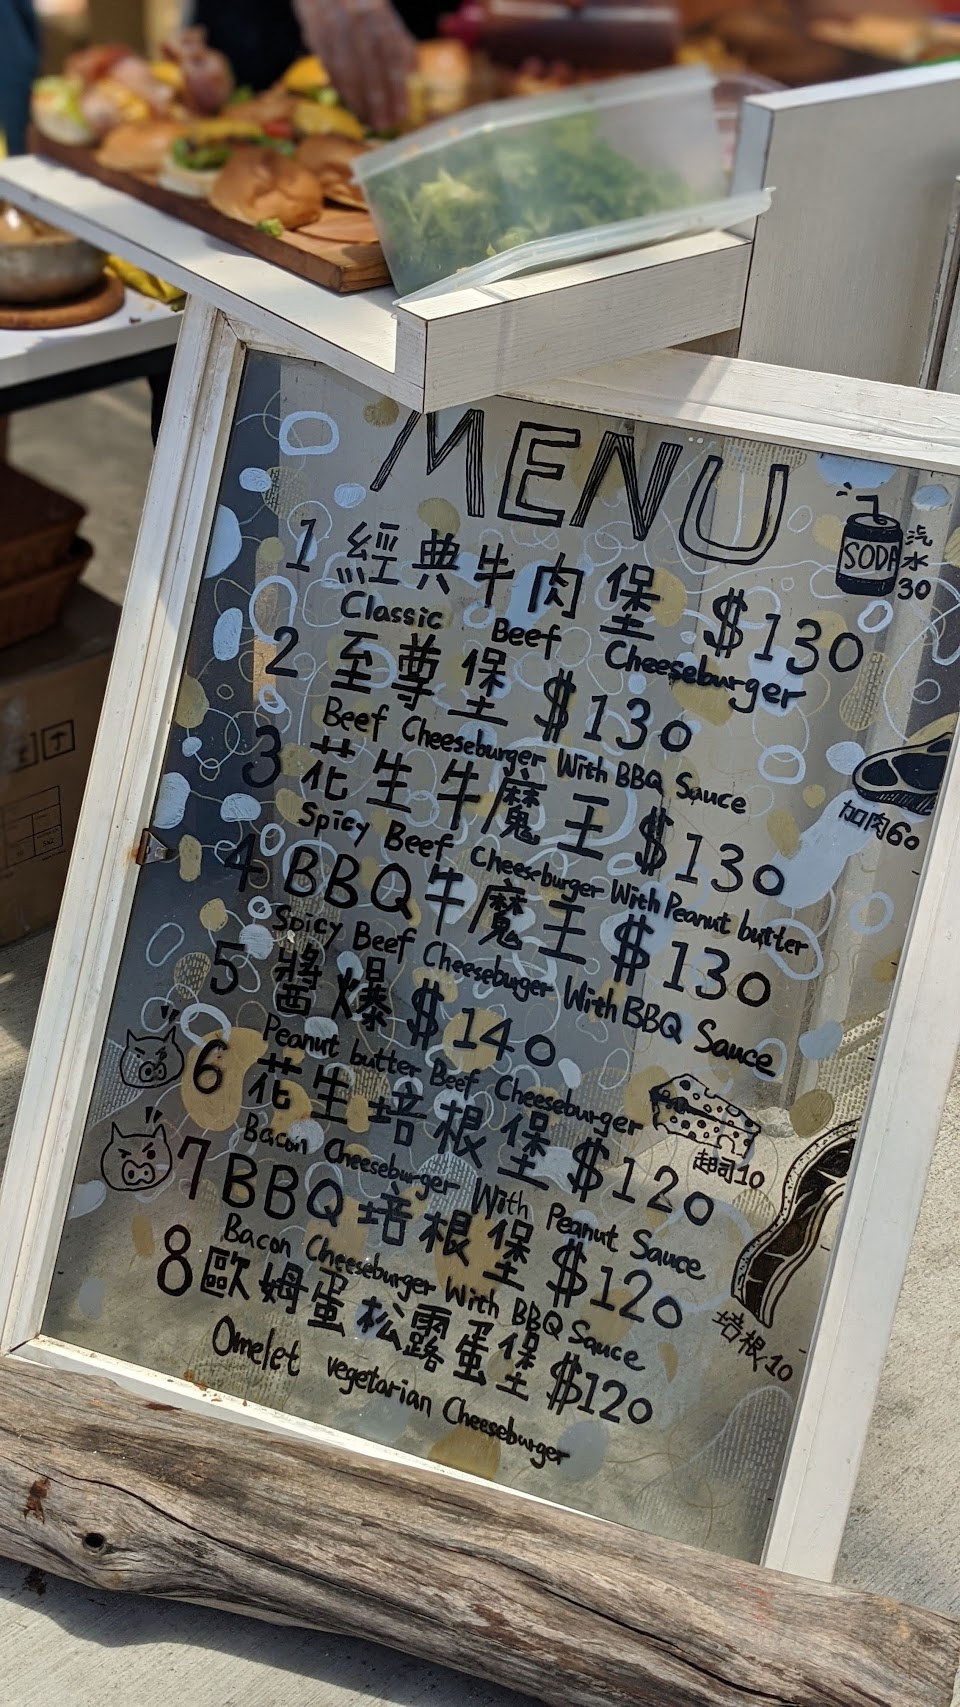 MENU
SODA
汽水
30
1 經典牛肉堡 $130
Classic Beef Cheeseburger
2 至尊堡 $130
Beef Cheeseburger With BBQ Sauce
3 花生牛魔王 $130
Spicy Beef Cheeseburger With Peanut butter
加肉60
4 BBQ牛魔王 $130
Spicy Beef Cheeseburger With BBQ Sauce
5 醬爆 $140
Peanut butter Beef Cheeseburger
起司10
6 花生培根堡 $120
Bacon Cheeseburger With Peanut Sauce
7 BBQ培根堡 $120
Bacon Cheeseburger With BBQ Sauce
培根10
8 歐姆蛋松露蛋堡 $120
Omelet vegetarian Cheeseburger